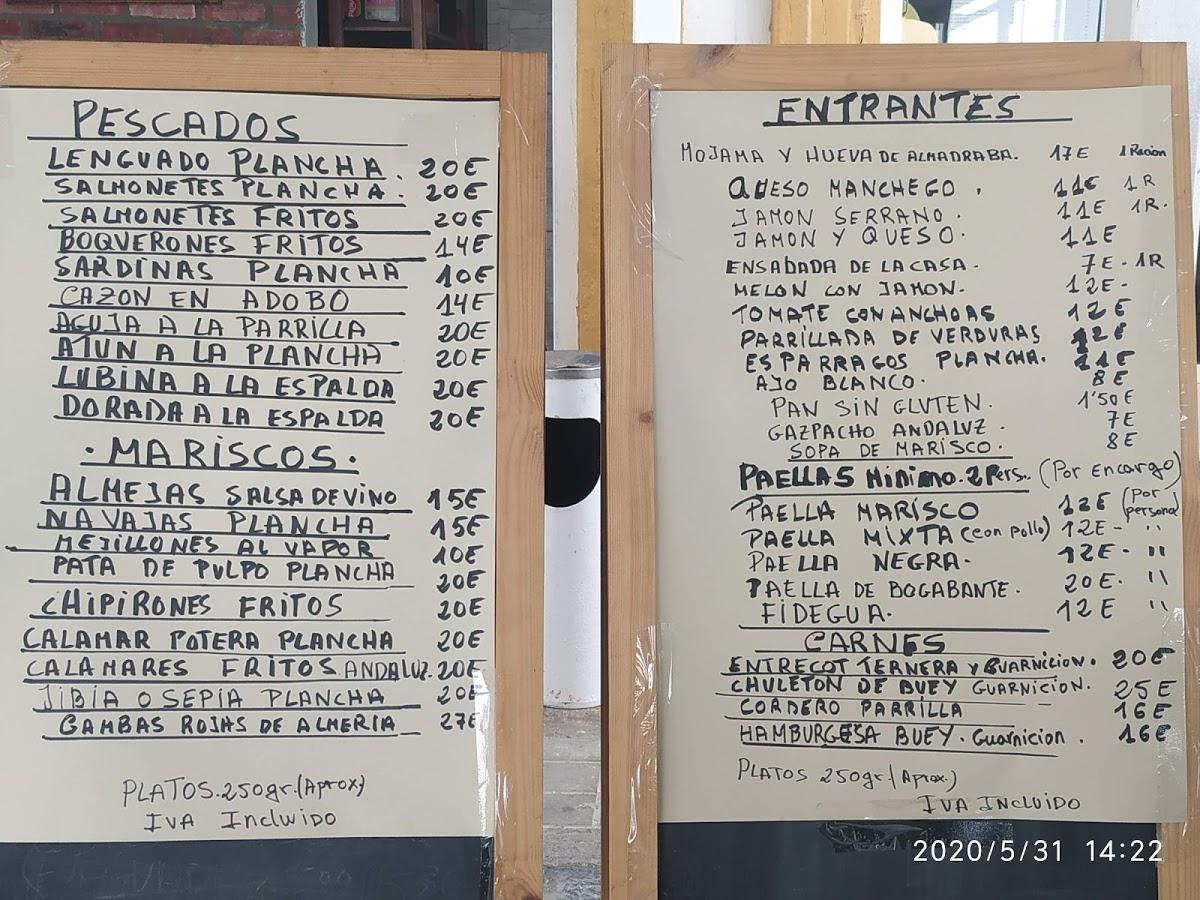 PESCADOS
LENGUADO PLANCHA. 20E
SALMONETES PLANCHA. 20E
SALMONETES FRITOS 20E
BOQUERONES FRITOS 14E
SARDINAS PLANCHA 10E
CAZON EN ADOBO 14E
AGUJA A LA PARRILLA 20E
ATUN A LA PLANCHA 20E
LUBINA A LA ESPALDA 20E
DORADA A LA ESPALDA 20E
. MARISCOS.
ALMEJAS SALSA DE VINO 15E
NAVAJAS PLANCHA 15E
MEJILLONES AL VAPOR 10E
PATA DE PULPO PLANCHA 20E
CHIPIRONES FRITOS 20E
CALAMAR POTERA PLANCHA 20E
CALAMARES FRITOS ANDALUZ. 20E
JIBIA O SEPIA PLANCHA 20E
GAMBAS ROJAS DE ALMERIA 27E
PLATOS. 250gr. (Aprox)
IVA INCLUIDO
ENTRANTES
MOJAMA Y HUEVA DE ALMADRABA. 17E 1 Racion
QUESO MANCHEGO . 11E 1R
JAMON SERRANO. 11E 1R.
JAMON Y QUESO. 11E
ENSADADA DE LA CASA. 7E - 1R
MELON CON JAMON. 12E-
TOMATE CON ANCHOAS 12E
PARRILLADA DE VERDURAS 12E
ESPARRAGOS PLANCHA. 11E
AJO BLANCO. 8E
PAN SIN GLUTEN. 1'50E
GAZPACHO ANDALUZ. 7E
SOPA DE MARISCO. 8E
PAELLAS Minimo. 2 Pers. (Por Encargo)
PAELLA MARISCO 12E (Por persona)
PAELLA MIXTA (con pollo) 12E- "
PAELLA NEGRA. 12E- "
PAELLA DE BOGABANTE. 20E. "
FIDEGUA. 12E "
CARNES
ENTRECOT TERNERA Y GUARNICION. 20E
CHULETON DE BUEY GUARNICION. 25E
CORDERO PARRILLA 16E
HAMBURGESA BUEY. Guarnicion. 16E
PLATOS 250gr. (Aprox.)
IVA INCLUIDO
2020/5/31 14:22